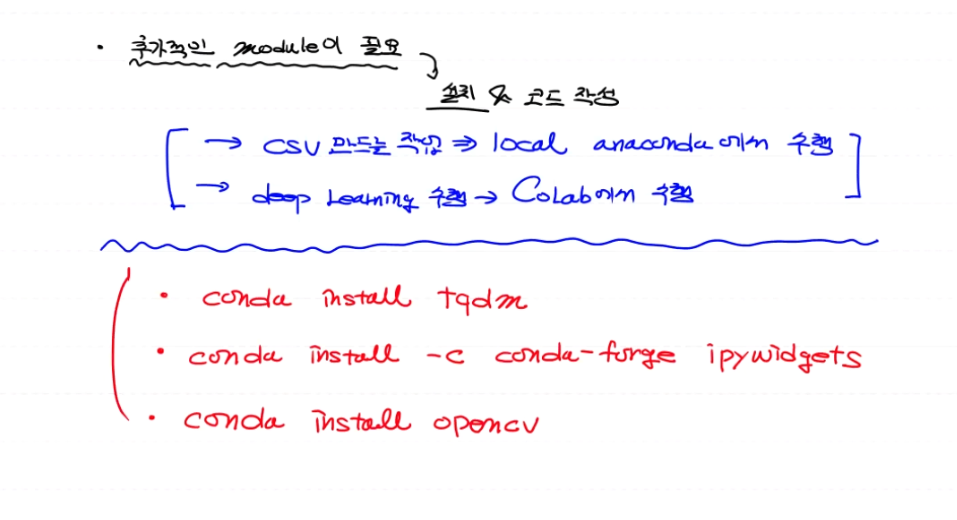 · 추가적인 module이 필요
설치 & 코드 작성
→ CSV 만드는 작업 ⇒ local anaconda에서 수행
→ deep Learning 수행 → Colab에서 수행
· conda install tqdm
· conda install -c conda-forge ipywidgets
· conda install opencv